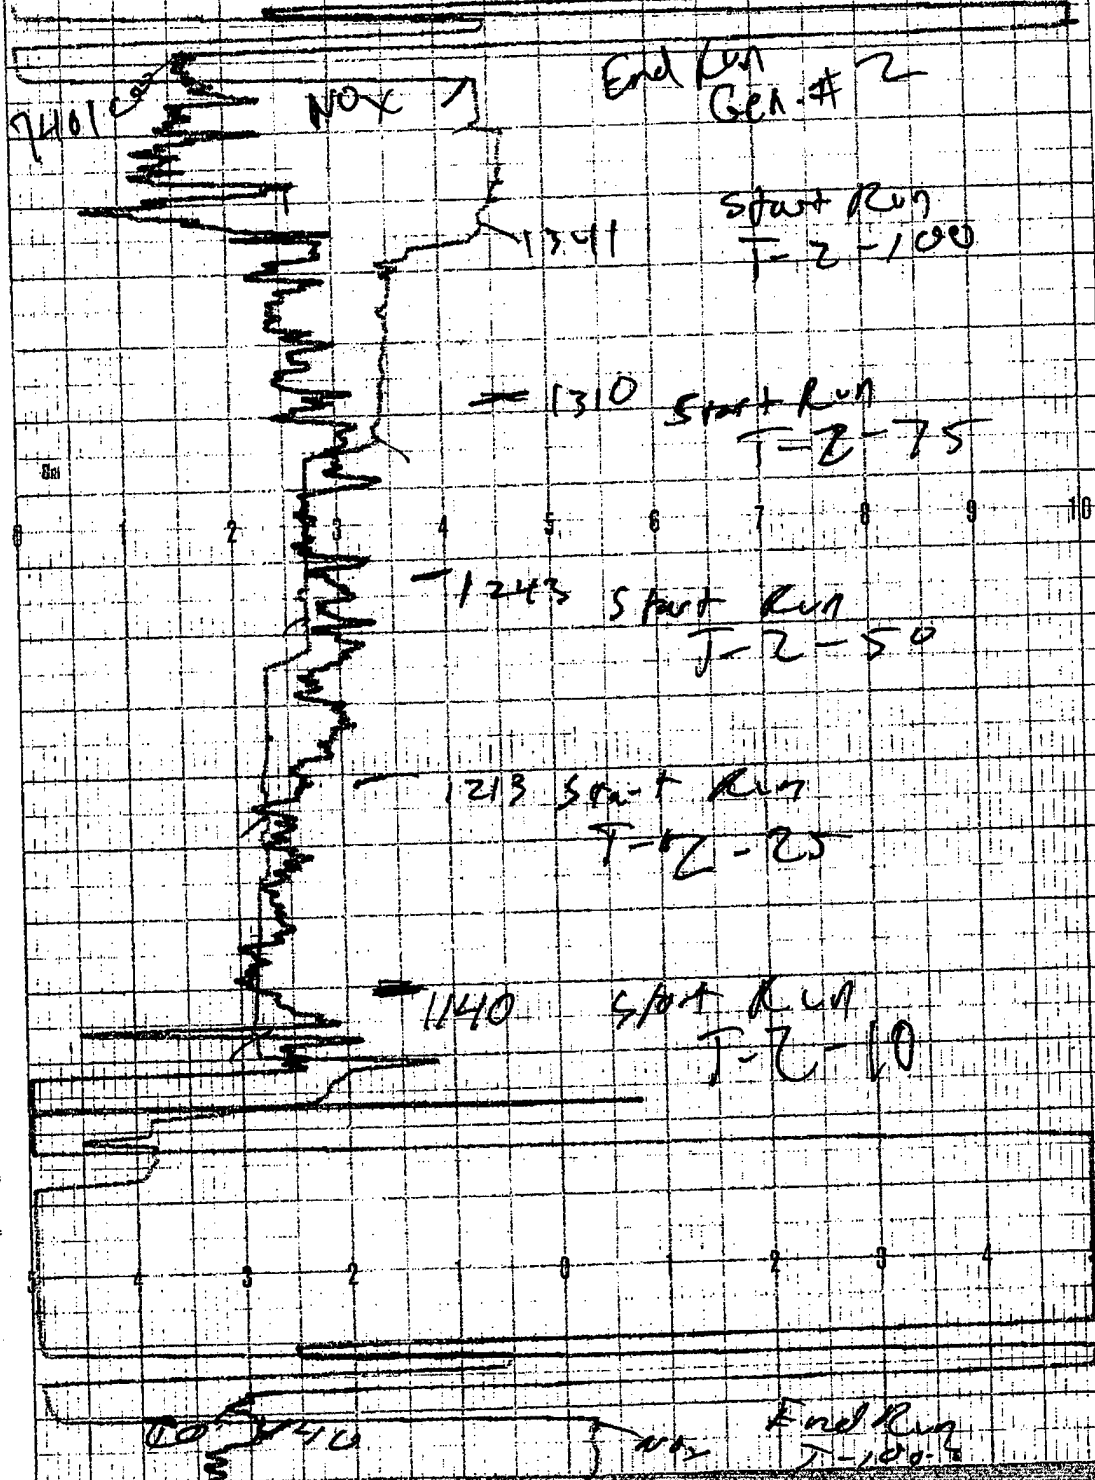 End Run
Gen. # 2
NOX
Start Run
1341
T-2-100
1310 Start Run
T-2-75
0 1 2 3 4 5 6 7 8 9 10
1243 Start Run
T-2-50
1213 Start Run
T-2-25
1140 Start Run
T-2-10
4 3 2 1 0 2 3 4
End Run
NOx